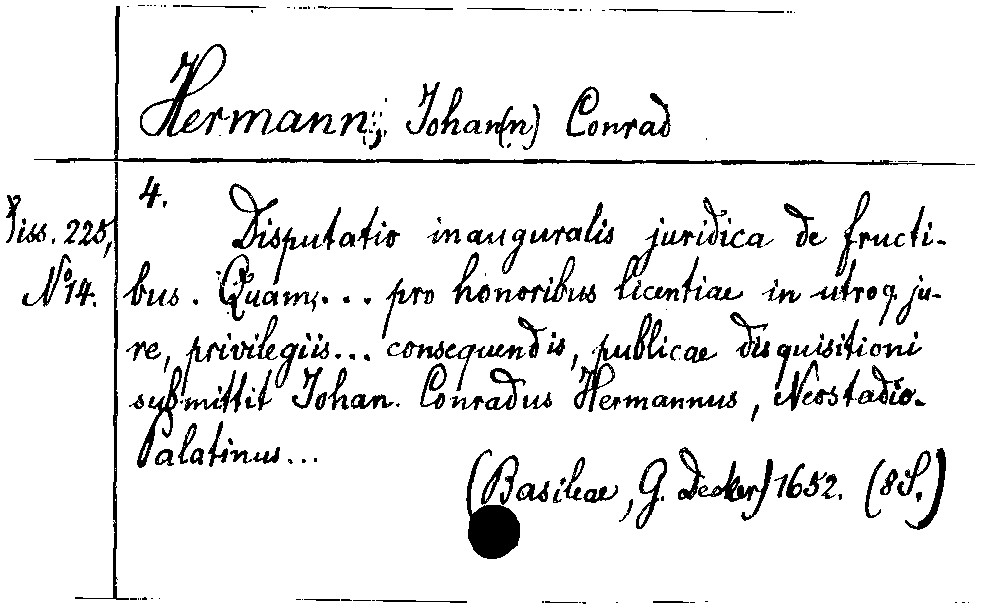 Hermann, Johan(n) Conrad
4.
Diss. 225,
No 14.
Disputatio inauguralis juridica de fructi-
bus. Quam,... pro honoribus licentiae in utroq. ju-
re, privilegiis... consequendis, publicae disquisitioni
submittit Johan. Conradus Hermannus, Neostadio-
Palatinus...
(Basileae, G. Decker) 1652. (8 S.)